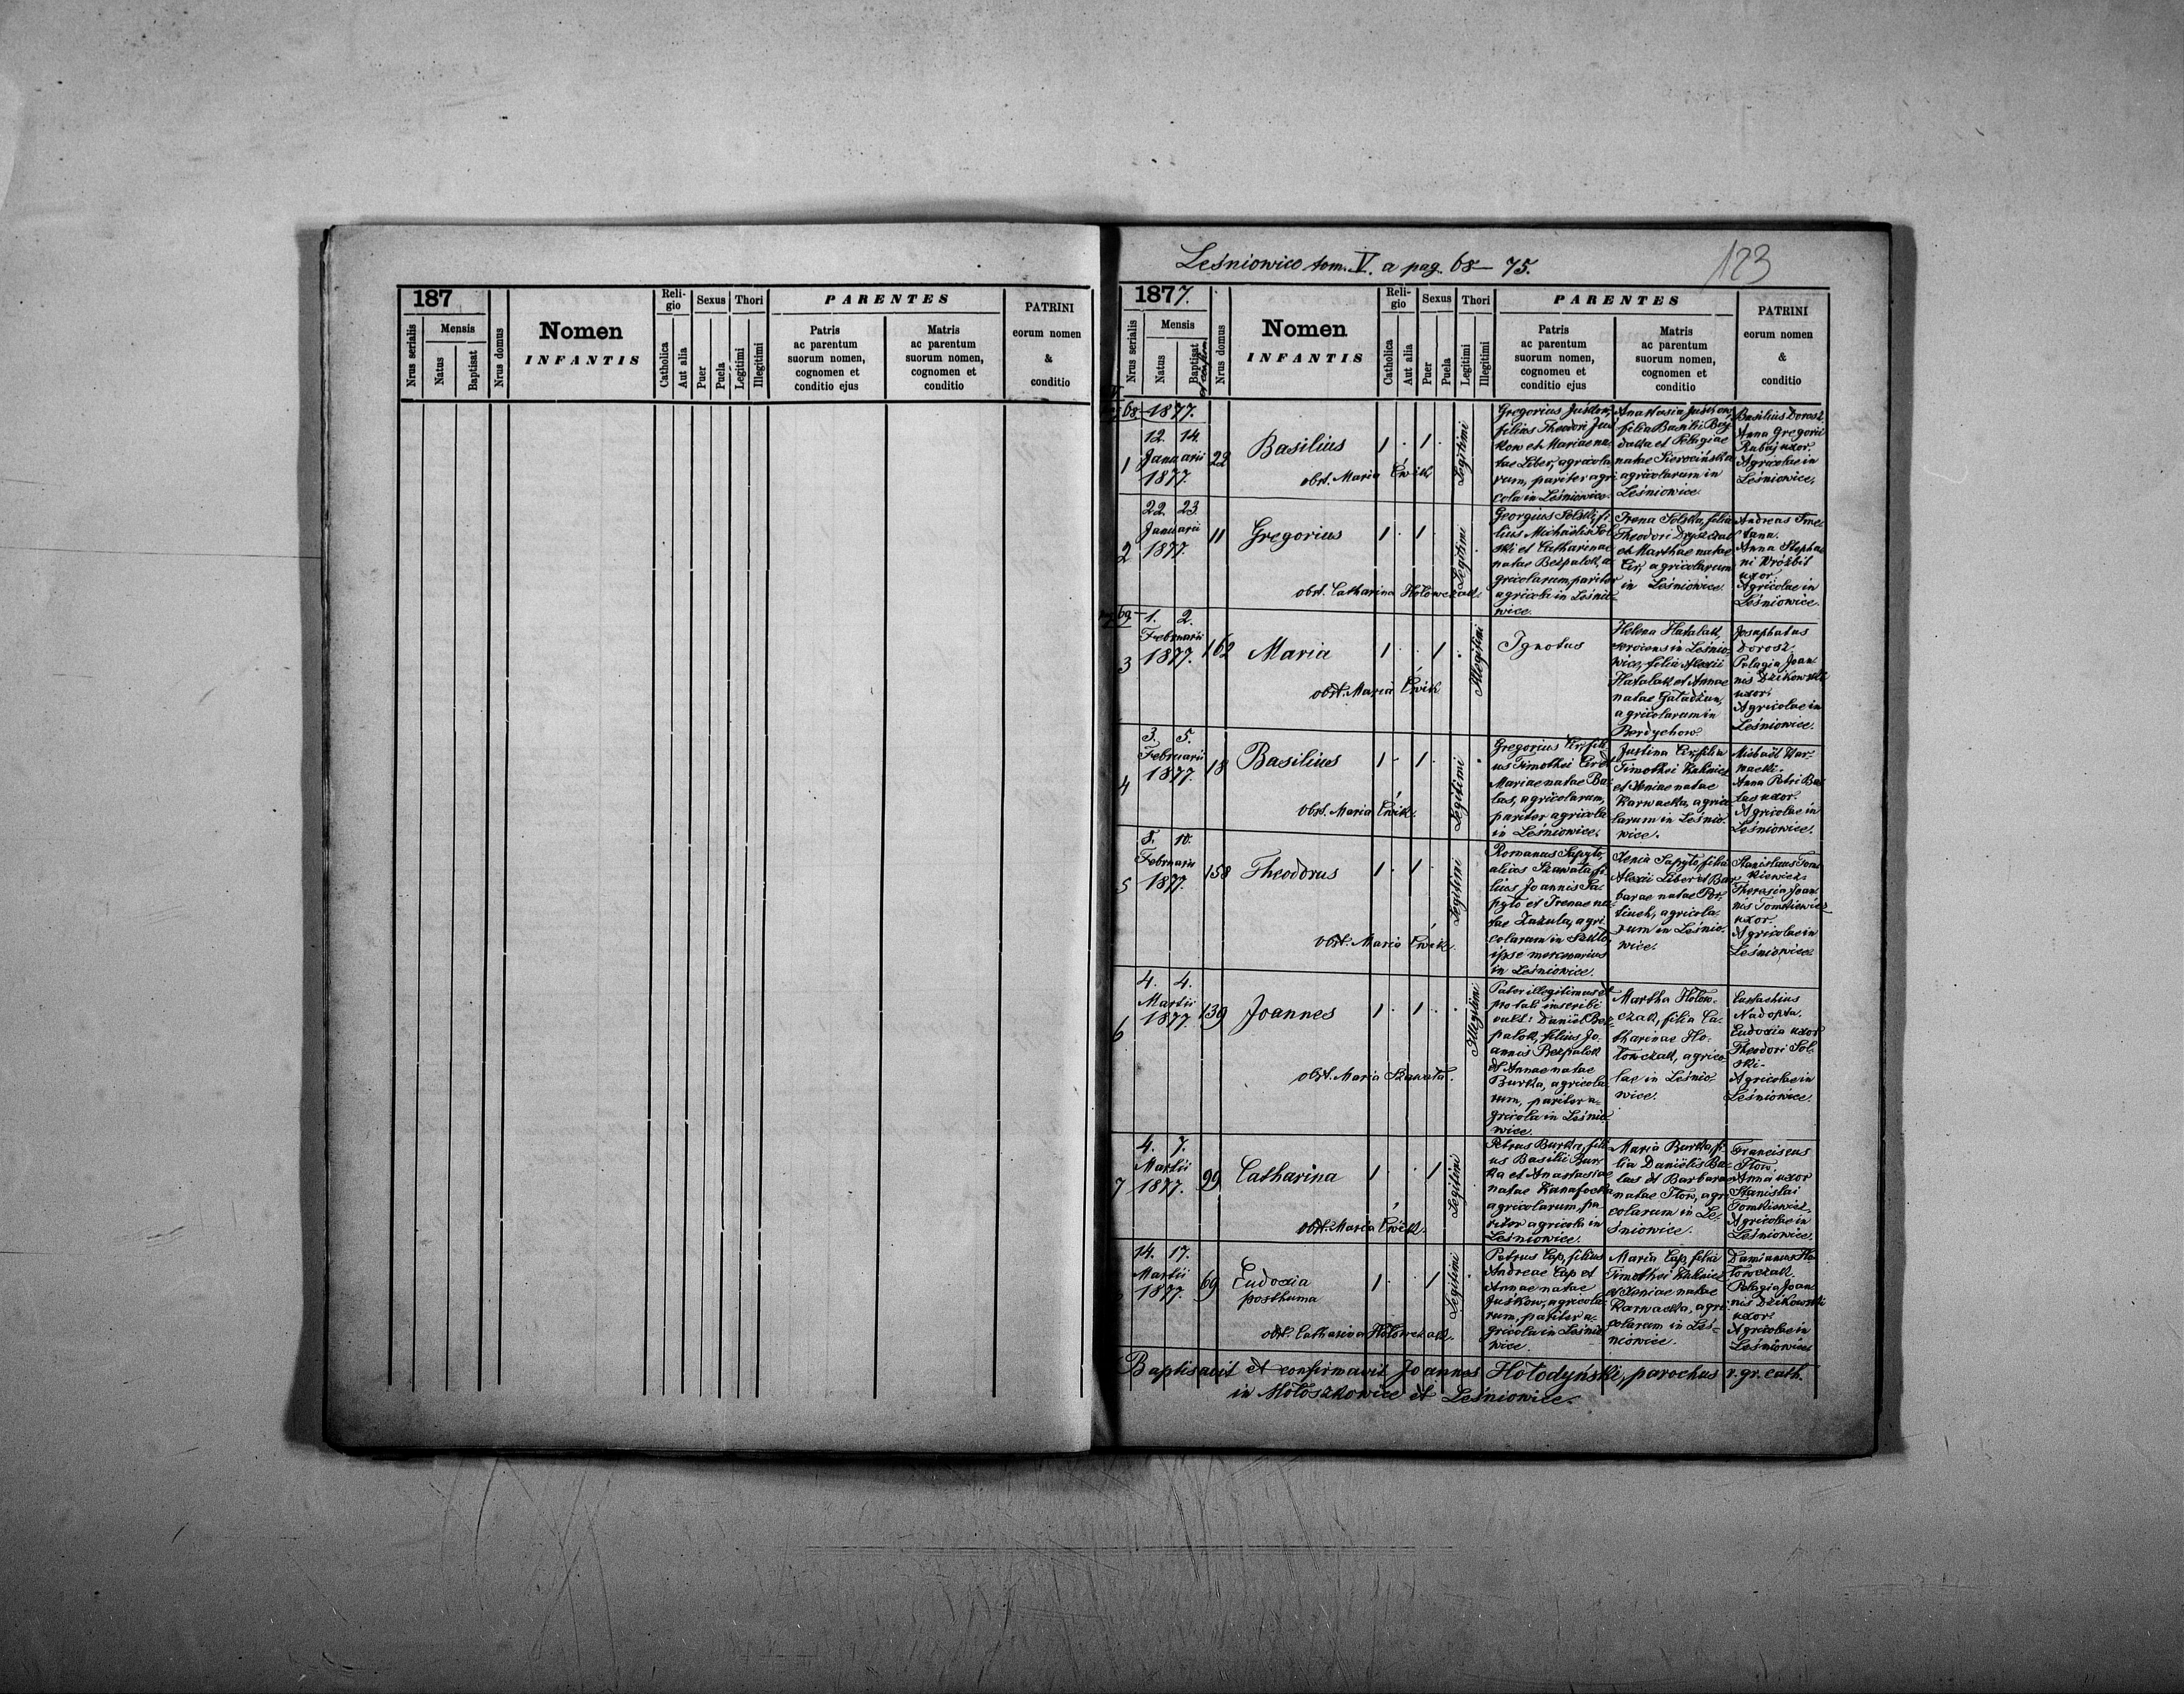 187
Nrus serialis
Mensis
Natus
Baptisat
Nrus domus
Nomen
INFANTIS
Reli-
gio
Catholica
Aut alia
Sexus
Puer
Puela
Thori
Legitimi
Illegitimi
PARENTES
Patris
ac parentum
suorum nomen,
cognomen et
conditio ejus
Matris
ac parentum
suorum nomen,
cognomen et
conditio
PATRINI
eorum nomen
&
conditio
Leśniowice tom. V. a pag. 68-75.
123
1877.
Nrus serialis
Mensis
Natus
Baptisat
Nrus domus
Nomen
INFANTIS
Reli-
gio
Catholica
Aut alia
Sexus
Puer
Puela
Thori
Legitimi
Illegitimi
PARENTES
Patris
ac parentum
suorum nomen,
cognomen et
conditio ejus
Matris
ac parentum
suorum nomen,
cognomen et
conditio
PATRINI
eorum nomen
&
conditio
68 1877.
1
12. 14.
Januarii
1877.
22
Basilius
obst. Maria Ćwik
1 . 1 .
Legitimi
Gregorius Juśkow,
filius Theodori Juś
kow et Mariae na-
tae Liber, agricola
rum, pariter agri
cola in Leśniowice.
Anastasia Juśkow,
filia Basilii Bez
datta et Pelagiae
natae Sierocińska
agricolarum in
Leśniowice.
Basilius Dorosz
Anna Gregorii
Rubaj uxor.
Agricolae in
Leśniowice.
2
22. 23.
Januarii
1877.
11
Gregorius
obst. Catharina Hołowczak.
1 . 1 .
Legitimi
Georgius Solski, fi
lius Michäelis Sol
ski et Catharinae
natae Bezpalok, a
gricolarum, pariter
agricola in Leśnio
wice.
Irena Solska, filia
Theodori Dyszczak
et Marthae natae
Cir, agricolarum
in Leśniowice.
Andreas Sme
tana.
Anna Stepha
ni Wróżbit
uxor.
Agricolae in
Leśniowice.
69
3
1. 2.
Februarii
1877.
162
Maria
obst. Maria Ćwik
1 . . 1 .
Illegitimi
Ignotus
Helena Hatalak,
serviens in Leśnio
wice, filia Alexii
Hatalak et Annae
natae Gaładżun,
agricolarum in
Berdychow.
Josaphatus
Dorosz
Pelagia Joan
nis Dzikowski
uxor.
Agricolae in
Leśniowice.
4
3. 5.
Februarii
1877.
18
Basilius
obst. Maria Ćwik.
1 . 1 .
Legitimi
Gregorius Cir, fili
us Timothei Cir et
Mariae natae Ba-
las, agricolarum,
pariter agricola
in Leśniowice.
Justina Cir, filia
Timothei
natae
Karwacka, agrico
larum in Leśnio
wice.
Michaël Kar-
wacki.
Anna Petri Ba
las uxor.
Agricolae in
Leśniowice.
5
8. 10.
Februarii
1877.
158
Theodorus
obst. Maria Ćwik.
1 . 1
Legitimi
Romanus Sapyto,
alias Szawała, fi
lius Joannis Sa-
pyto et Irenae na
tae Zazula, agri
colarum in
ipse mercenarius
in Leśniowice.
Xenia Sapyto, filia
Alexii Liber et Bar
barae natae
agricola-
rum in Leśnio
wice.
Stanislaus Tom
kiewicz.
Theresia Joan
nis Tomkiewicz
uxor.
Agricolae in
Leśniowice.
6
4. 4.
Martii
1877.
139
Joannes
obst. Maria Szawała.
1 . 1 .
Illegitimi
Pater illegitimus et
pro tali inscribi
vult: Daniël Bez
palok, filius Jo-
annis Bezpalok
et Annae natae
Burka, agricola
rum, pariter a-
gricola in Leśnio
wice.
Martha Hołow-
czak, filia Ca-
tharinae Ho-
łowczak, agrico-
lae in Leśnio-
wice.
Eustachius
Nadopta.
Eudoxia uxor
Theodori Sol-
ski.
Agricolae in
Leśniowice.
7
4. 7.
Martii
1877.
99
Catharina
obst. Maria Ćwik.
1 . . 1
Legitimi
Petrus Burka, fili
us Basilii Bur
ka et Anastasiae
natae Kanafocka
agricolarum, pa
riter agricola in
Leśniowice.
Maria Burka, fi
lia Daniëlis Ba-
las et Barbarae
natae Tłow, agri
colarum in Le-
śniowice.
Franciscus
Tłow.
Anna uxor
Stanislai
Tomkiewicz.
Agricolae in
Leśniowice.
14. 17.
Martii
1877.
69
Eudoxia
posthuma
obst. Catharina Hołowczak.
1 . . 1
Legitimi
Petrus Cap, filius
Andreae Cap et
Annae natae
Juśkow, agricola-
rum, pariter a-
gricola in Leśnio
wice.
Maria Cap, filia
Timothei
et Xeniae natae
Karwacka, agri
colarum in Leś-
niowice.
Damianus Ho
łowczak
Pelagia Joan
nis Dzikowski
uxor.
Agricolae in
Leśniowice.
Baptisavit et confirmavit Joannes Hołodyński, parochus r. gr. cath.
in Mołoszkowice et Leśniowice.